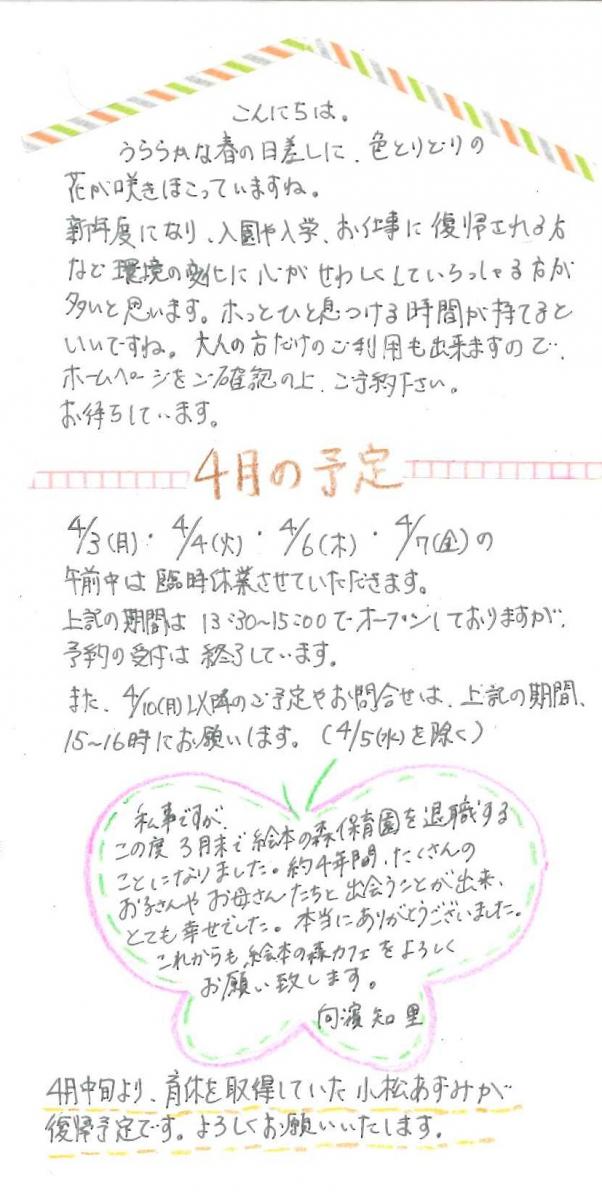 こんにちは。
うららかな春の日差しに、色とりどりの
花が咲きほこっていますね。
新年度になり、入園や入学、お仕事に復帰される方
など環境の変化に心がせわしくしていらっしゃる方が
多いと思います。ホッとひと息つける時間が持てると
いいですね。大人の方だけのご利用も出来ますので、
ホームページをご確認の上、ご予約下さい。
お待ちしています。
4月の予定
4/3(月)・4/4(火)・4/6(木)・4/7(金)の
午前中は臨時休業させていただきます。
上記の期間は13:30~15:00でオープンしておりますが、
予約の受付は終了しています。
また、4/10(月)以降のご予定やお問合せは、上記の期間、
15~16時にお願いします。(4/5(水)を除く)
私事ですが、
この度3月末で絵本の森保育園を退職する
ことになりました。約4年間、たくさんの
お子さんやお母さんたちと出会うことが出来、
とても幸せでした。本当にありがとうございました。
これからも絵本の森カフェをよろしく
お願い致します。
向濱知里
4月中旬より、育休を取得していた小松あずみが
復帰予定です。よろしくお願いいたします。